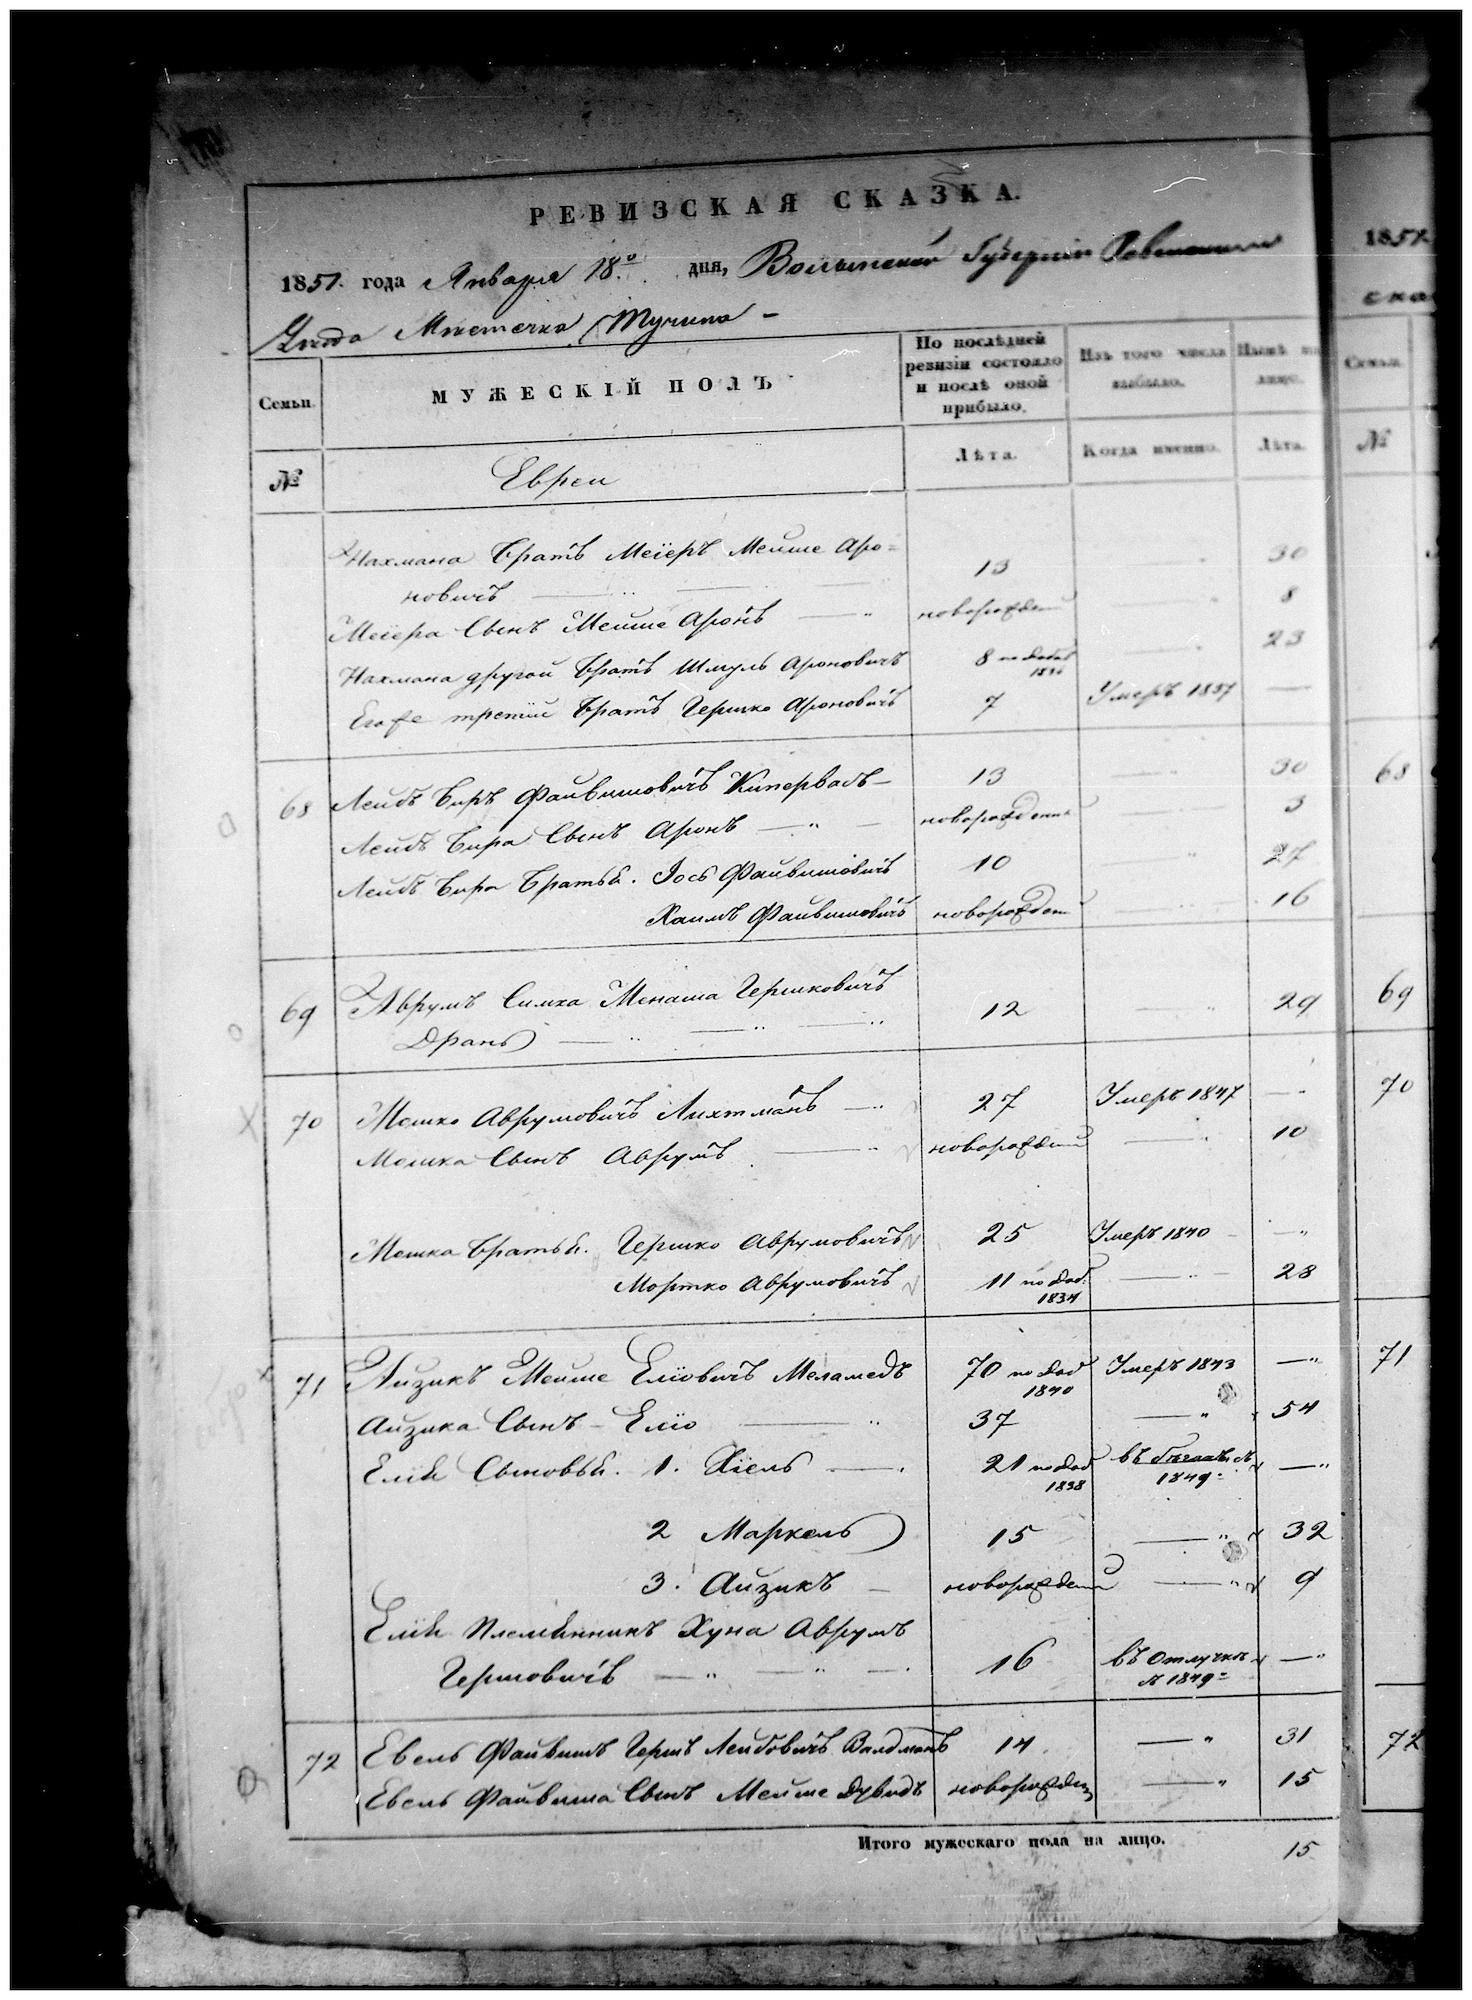 РЕВИЗСКАЯ СКАЗКА.
1851. года Января 18.º дня, Волынской Губернии Ровенскаго
Уезда Местечка Тучина -
Семьи. МУЖЕСКІЙ ПОЛЪ По послѣдней ревизіи состояло и послѣ оной прибыло. Изъ того числа выбыло. Нынѣ на лицо.
№ Евреи Лѣта. Когда именно. Лѣта.
Нахмана братъ Меіеръ Мейше Аро=
новичъ 13 30
Меіера Сынъ Мейше Аронъ новорожден 8
Нахмана другой братъ Шмуль Ароновичъ 8 по добав 23
Его же третій братъ Гершко Ароновичъ 7 Умеръ 1837 —
68 Лейбъ Биръ Файвишовичъ Кипервасъ 13 30
Лейбъ Бира Сынъ Аронъ новорожденны 3
Лейбъ Бира братья. Іось Файвишовичъ 10 27
Хаимъ Файвишовичъ новорожден 16
69 Аврумъ Симха Менаша Гершковичъ 12 29
Дрань
70 Мошко Аврумовичъ Лихтманъ 27 Умеръ 1847 —
Мошка Сынъ Аврумъ новорожден 10
Мошка братья. Гершко Аврумовичъ 25 Умеръ 1840 —
Мортко Аврумовичъ 11 по доб. 28
1834
71 Айзикъ Мейше Еліовичъ Меламедъ 70 по доб Умеръ 1843 —
1840
Айзика Сынъ - Еліо 37 54
Еліи Сыновья. 1. Хіель 21 по доб въ бегахъ съ —
1838 1849
2 Маркель 15 32
3. Айзикъ новорожден 9
Еліи племянникъ Хуна Аврумъ
Гершовичъ 16 въ отлучке —
съ 1849
72 Евель Файвишъ Гершъ Лейбовичъ Валдманъ 14 31
Евель Файвиша Сынъ Мейше Дувидъ новорожден 15
Итого мужескаго пола на лицо. 15
1851
сказ
Семьи.
№
68
69
70
71
72